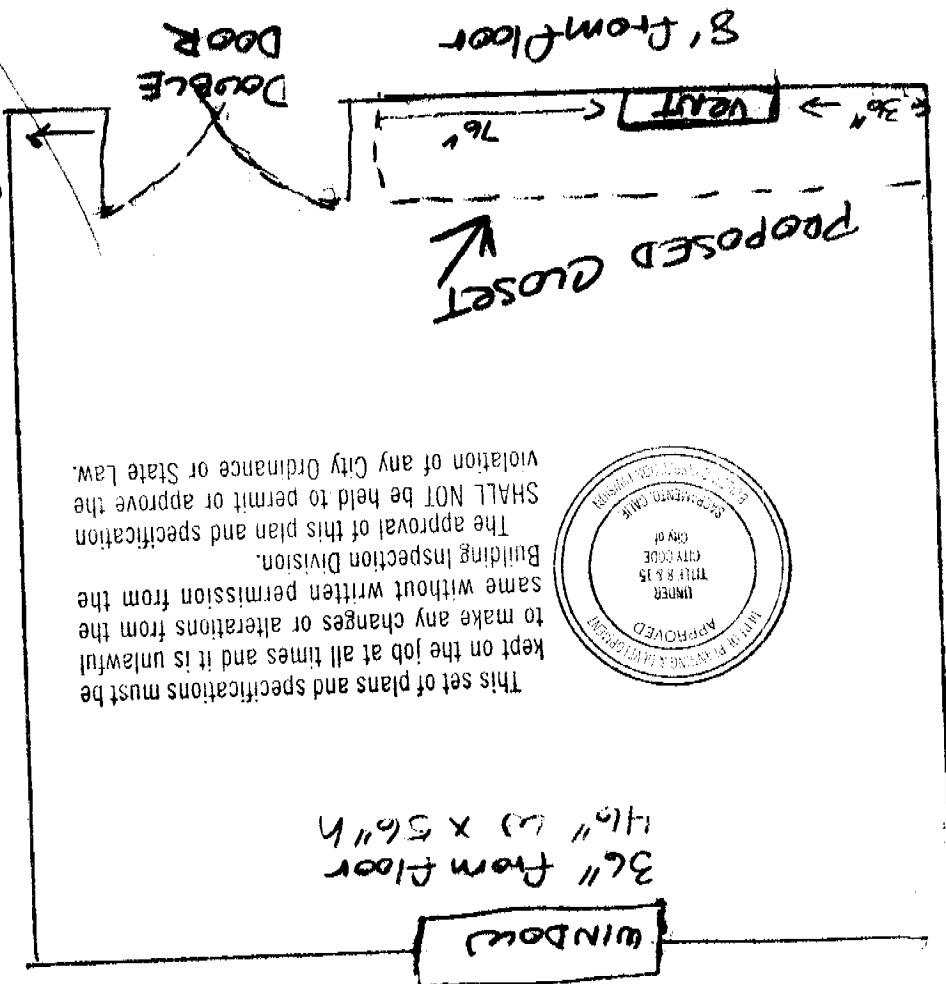 WINDOW
36" from floor
46" w x 56" h
This set of plans and specifications must be
kept on the job at all times and it is unlawful
to make any changes or alterations from the
same without written permission from the
Building Inspection Division.
The approval of this plan and specification
SHALL NOT be held to permit or approve the
violation of any City Ordinance or State Law.
DEPT OF PLANNING & DEVELOPMENT
APPROVED
UNDER
TITLE 8 & 15
CITY CODE
City of
SACRAMENTO, CALIF
BUILDING INSPECTION DIVISION
PROPOSED CLOSET
36"
VENT
76"
8' from floor
DOUBLE
DOOR